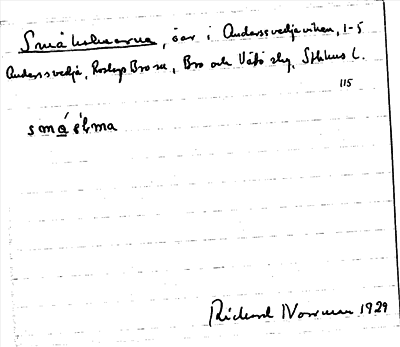 Småholmarna, öar i Anderssvedjaviken, 1-5
Anderssvedja, Roslags Bro sn, Bro och Vätö skg, Sthlms l.
115
Rickard Norman 1929